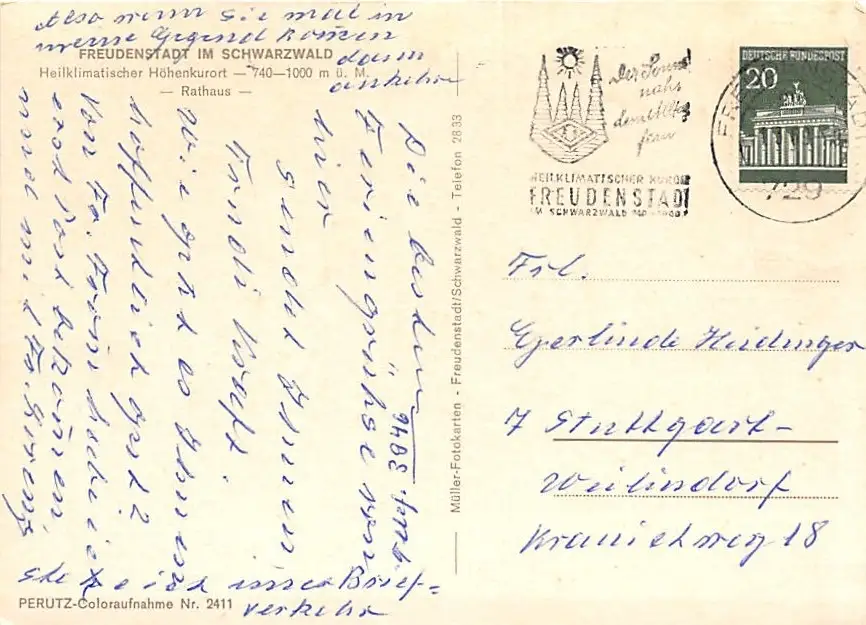 Also wenn Sie mal in
meine Gegend kommen
dann
ankehren
FREUDENSTADT IM SCHWARZWALD
Heilklimatischer Höhenkurort — 740—1000 m ü. M.
— Rathaus —
Die besten
Feriengrüße von
hier
sendet Ihnen
Trudi
Wie geht es Ihnen
hoffentlich gut?
Von Fr. habe ich
erst Post bekommen
mit Fr.
stehe ich im Brief-
verkehr
Tel. 3846
PERUTZ-Coloraufnahme Nr. 2411
Müller-Fotokarten - Freudenstadt/Schwarzwald - Telefon 2833
HEILKLIMATISCHER KURORT
FREUDENSTADT
IM SCHWARZWALD
DEUTSCHE BUNDESPOST
20
729
Frl.
Gerlinde Heidinger
7 Stuttgart-
Weilimdorf
Kranichweg 18